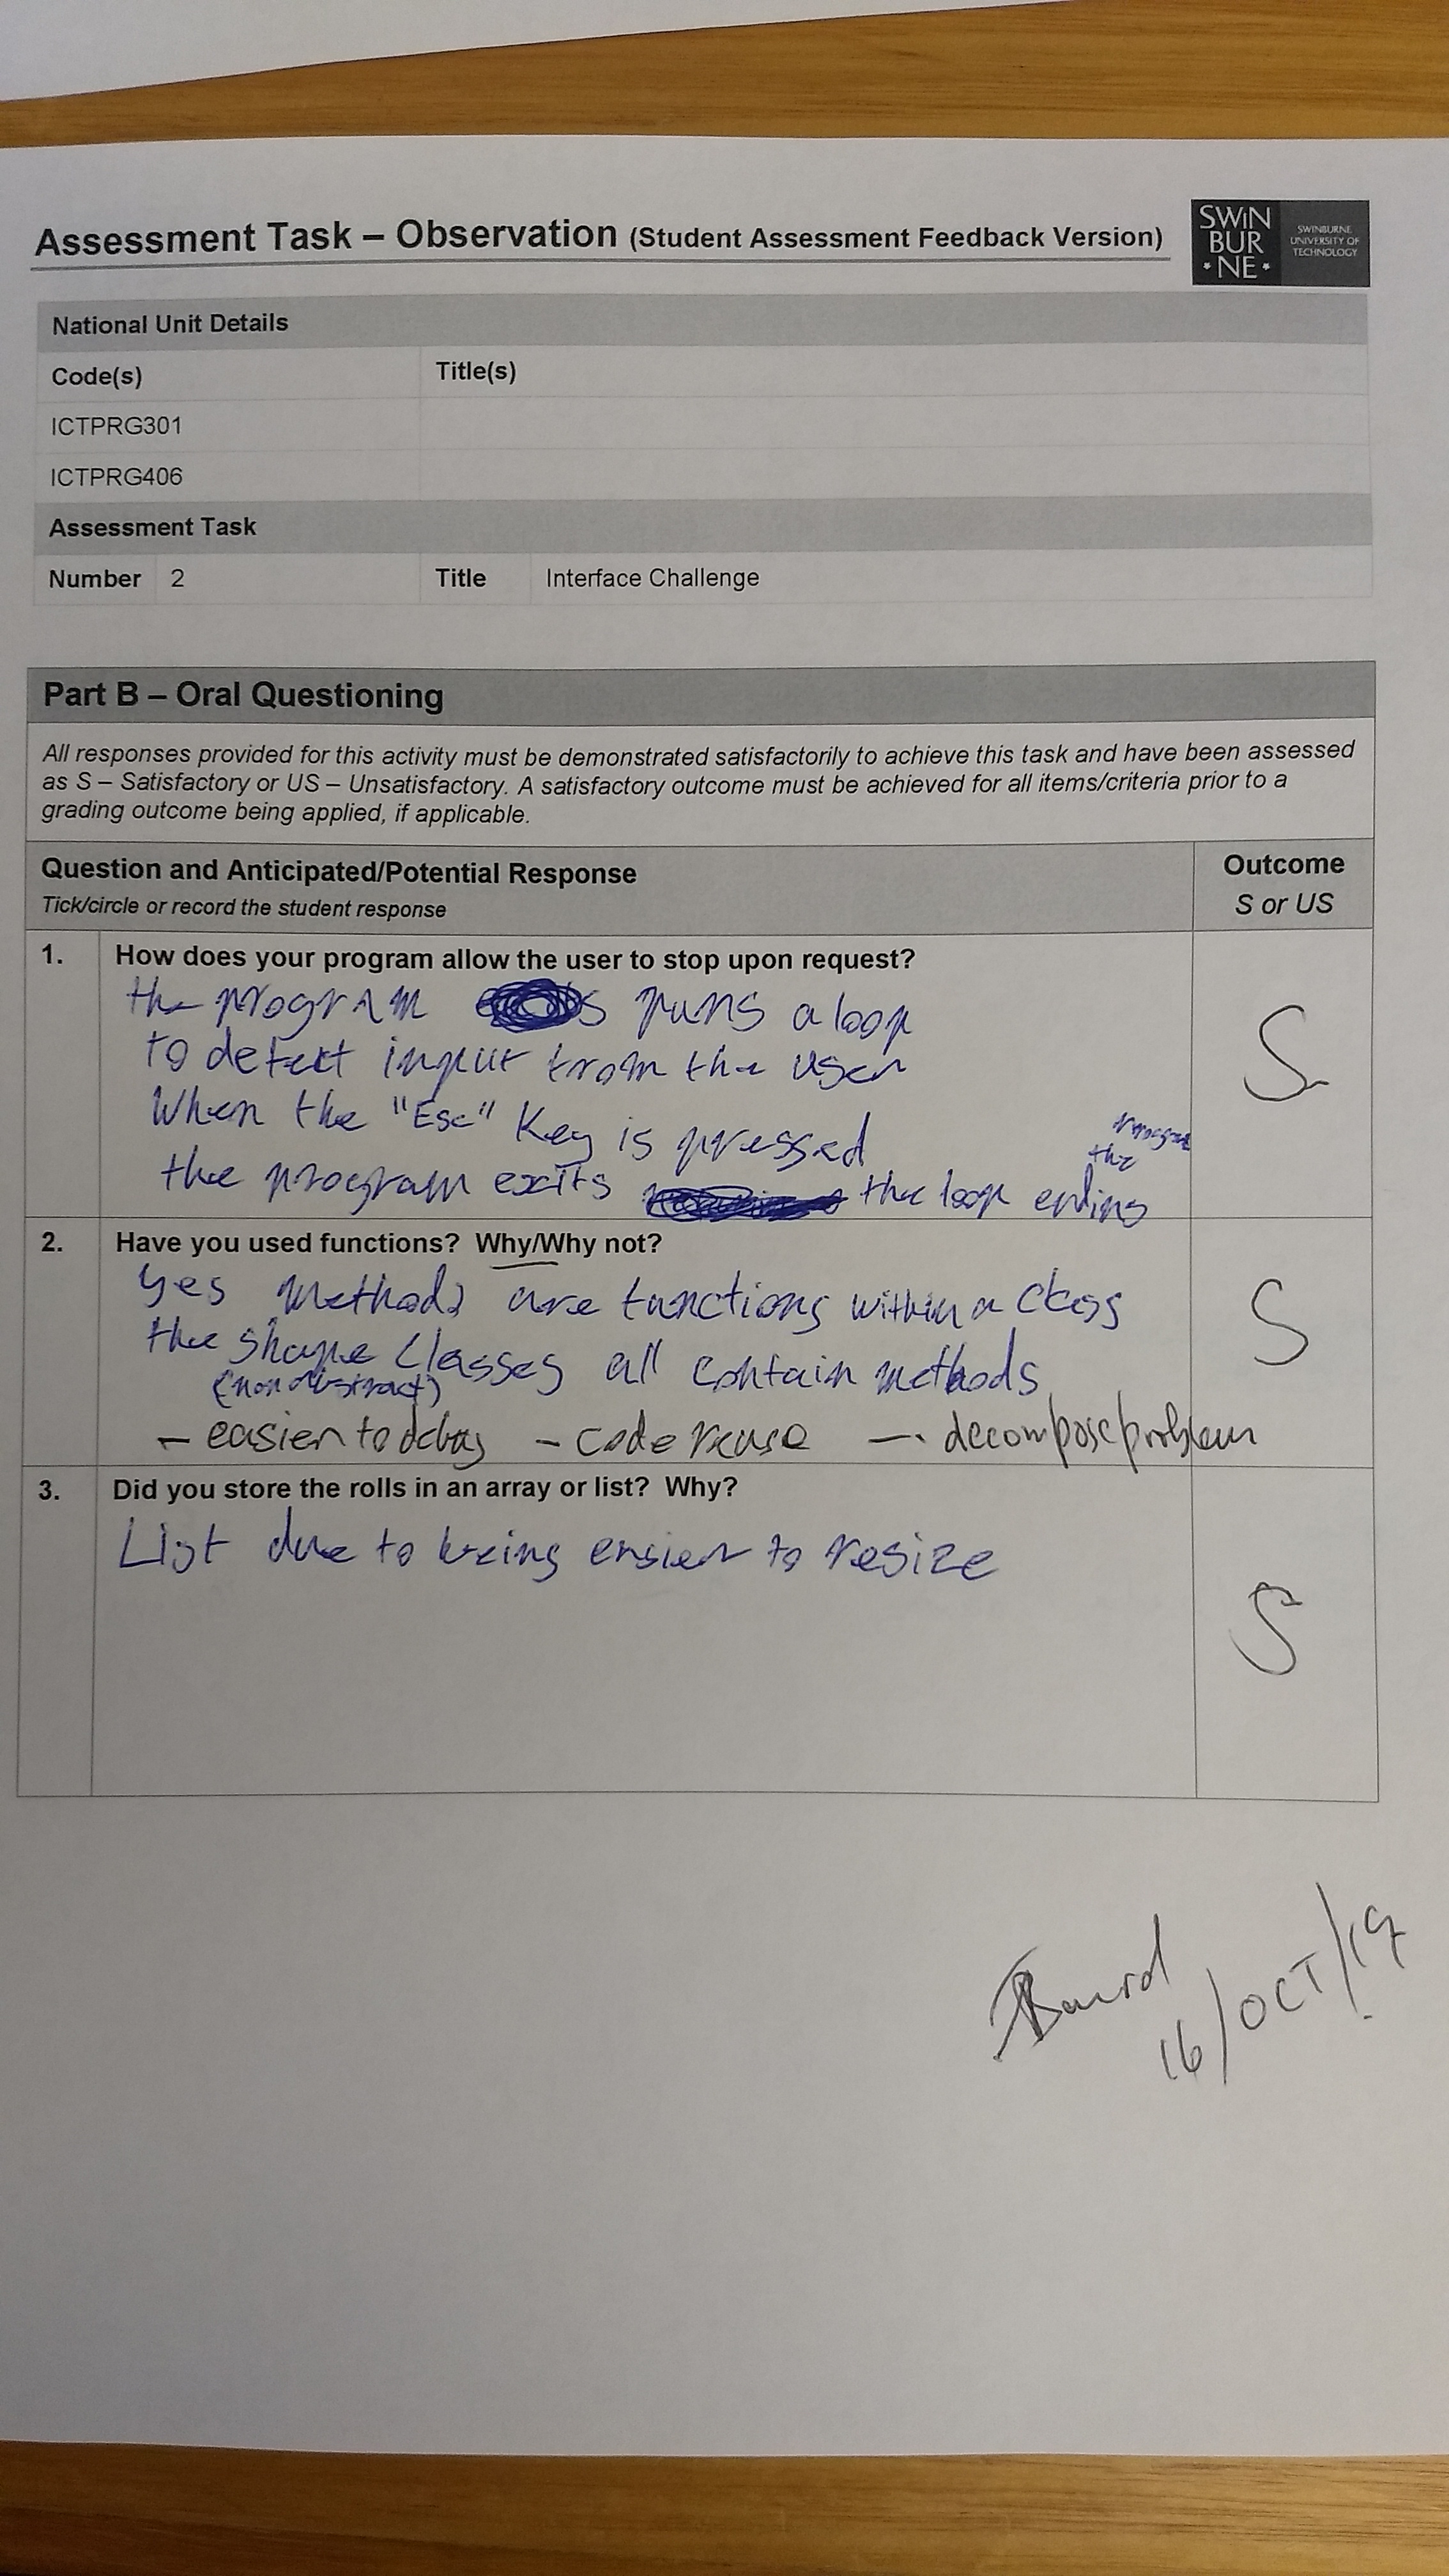 Assessment Task – Observation (Student Assessment Feedback Version)
SWiN
BUR
* NE *
SWINBURNE
UNIVERSITY OF
TECHNOLOGY
National Unit Details
Code(s) Title(s)
ICTPRG301
ICTPRG406
Assessment Task
Number 2 Title Interface Challenge
Part B – Oral Questioning
All responses provided for this activity must be demonstrated satisfactorily to achieve this task and have been assessed
as S – Satisfactory or US – Unsatisfactory. A satisfactory outcome must be achieved for all items/criteria prior to a
grading outcome being applied, if applicable.
Question and Anticipated/Potential Response Outcome
Tick/circle or record the student response S or US
1. How does your program allow the user to stop upon request?
the program runs a loop
to detect input from the user
S
When the "Esc" Key is pressed
the program exits the loop ending
the program
2. Have you used functions? Why/Why not?
yes methods are functions within a class
the shape classes all contain methods
S
(non abstract)
- easier to debug - code reuse - decompose problem
3. Did you store the rolls in an array or list? Why?
List due to being easier to resize
S
16/OCT/19